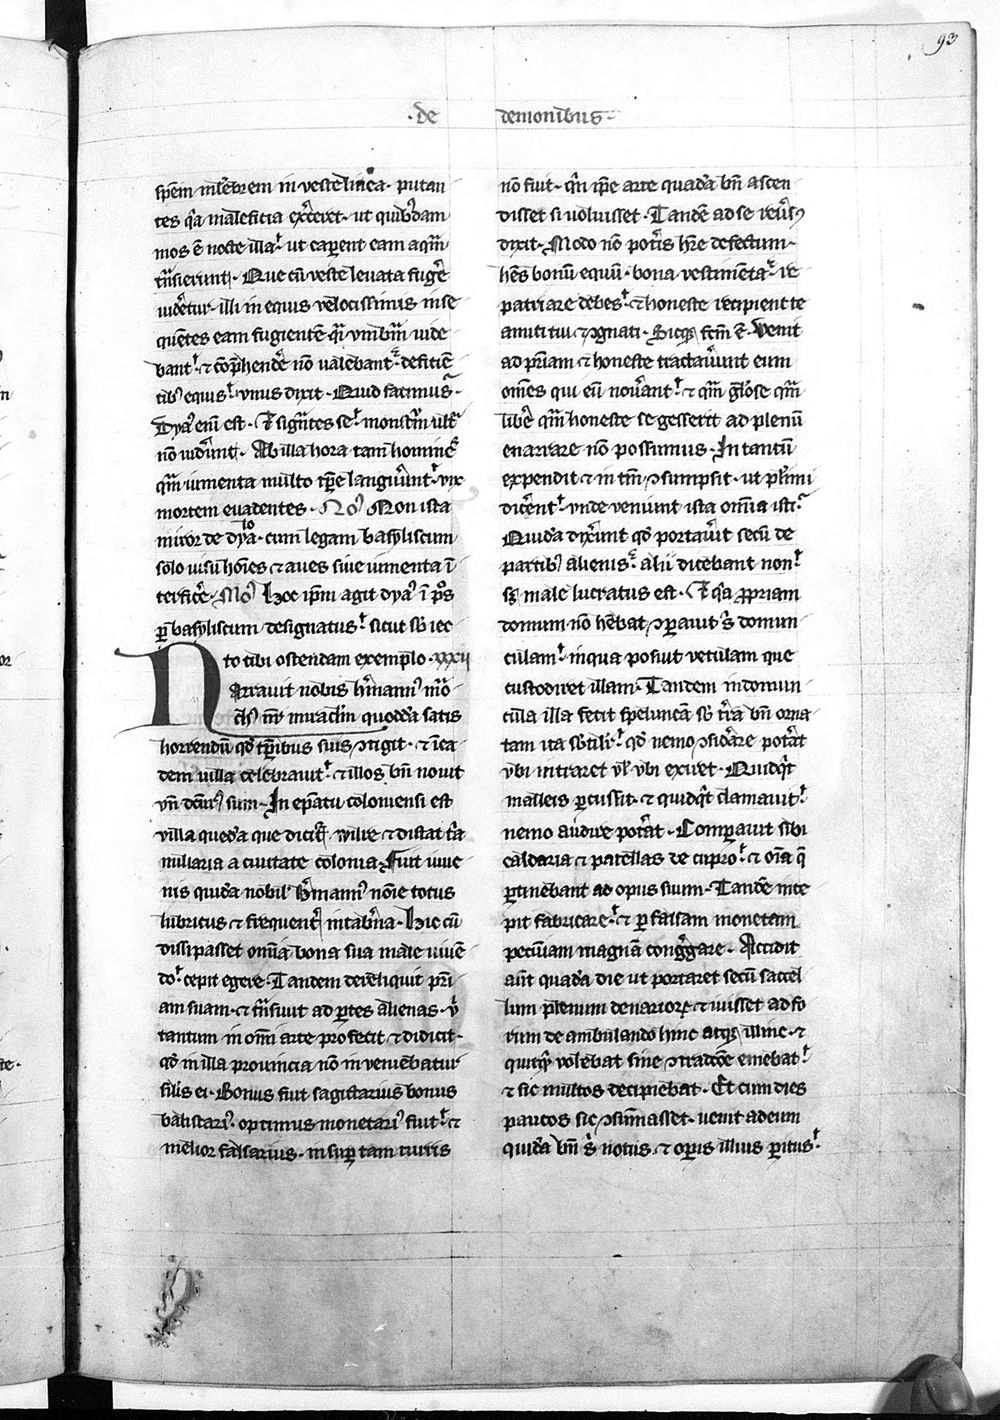 93
·de demonibus·
spēm mlʼebrem in veste linea· putan
tes qʼa maleficia exʼceret· ut quibʼdam
mos ē nocte illa· ut caperent eam aqm̄
tn̄sierunt· Que cū veste levata fugʼe
vidʼetur· illi in equis velocissimis inse
quētes eam fugientē qʼi umbrā vide
bant· ⁊ cōpʼhendʼe nō valebant· deficiē
tibʼ equis· vnus dixit· Quid facimus·
Dyaʼ eni est· ⁊ sigͣntes se· monstrū ultͣ
nō vidʼunt· Ab illa hora tam hominēs
qm̄ iumenta multo tp̄e languʼunt· vix
mortem evadentes· Noʼ Non ista
miror de dyabolo· cum legam basyliscum
solo visu hoīes ⁊ aves sive iumenta ī
terficʼe· Moʼ Hoc ip̄m agit dyaʼ ī pʼos
per basyliscum designatus· sicut sbʼ iec
to tibi ostendam exemplo· xxxii
Narravit nobis hʼmannʼ mōʼ
chʼ nr̄ miraclm̄ quoddʼa satis
horrendū qd̄ tp̄ibus suis ↄtigit· ⁊ ī ea
dem villa celebravit· ⁊ illos bn̄ novit
vn̄ dc̄turʼ sum· In ep̄atu coloniensi est
villa quedʼa que dicitʼ wilre ⁊ distat tʼa
miliaria a civitate colonia· Fuit iuve
nis quidʼa nobilʼ hʼmannʼ noīe totus
lubricus ⁊ frequentʼ in tabʼna· Hic cū
dissipasset omīa bona sua male vivē
do· cepit egere· Tandem dereliquit prʼi
am suam· ⁊ tn̄sivit ad pʼtes alienas· vʼ
tantum in om̄i arte profecit ⁊ didicit·
qd̄ in illa provincia nō inveniebatur
silʼis ei· Bonus fuit sagittarius bonus
balistarʼ· optimus monetarʼ fuit· ⁊
melior falsarius· insupʼ tam turris
nō fuit· qʼin ip̄e arte quadʼa bn̄ ascen
disset si voluisset· Tandē ad se reversʼ
dixit· Modo nō potʼis hr̄e defectum·
hēs bonū equū· bona vestimēta· re
patriare debes· ⁊ honeste recipient te
amici tui ⁊ ↄgnati· Sicqʒ fcm̄ ē· Venit
ad pr̄iam ⁊ honeste tractavʼunt eum
om̄es qui eū novʼant· ⁊ qm̄ glʼose qm̄
libʼe qm̄ honeste se gesserit ad plenū
enarrare nō possumus· In tantū
expendit ⁊ in tm̄ ↄsumpsit· ut plʼimi
dicʼent· vnde veniunt ista om̄ia isti·
Quidʼa dixʼunt qd̄ portavʼit secū de
partibʼ alienis· alii dicebant non·
sʒ male lucratus est· ⁊ qʼa ppriam
domum nō hēbat ↄparavit sʼ domun
culam· in qua posuit vetulam que
custodiret illam· Tandem in domun
cula illa fecit speluncā sbʼ tʼra bn̄ orna
tam ita sbʼtilrʼ· qd̄ nemo ↄsidʼare potʼat
vbi intraret vl̓ vbi exiret· Quidqʼt
malleis pʼcussit· ⁊ quidqʼt clamavit·
nemo audire potʼat· Comparavit sibi
caldaria ⁊ patellas de cupro· ⁊ om̄ia q̄
pʼtinebant ad opus suum· Tandē ince
pit fabricare· ⁊ pʼ falsam monetam
pecuniam magnā congʼgare· Accidit
aūt quadʼa die ut portaret secū saccel
lum plenum denariorʒ ⁊ ivisset ad fo
rum deambulando hinc atqʒ illinc· ⁊
quicqʼ volebat sine ↄtradcōe emebat·
⁊ sic multos decipiebat· Et cum dies
paucos sic ↄsūmasset· venit ad eum
quidʼa bn̄ sʼ notus· ⁊ opʼis illius pʼitus·